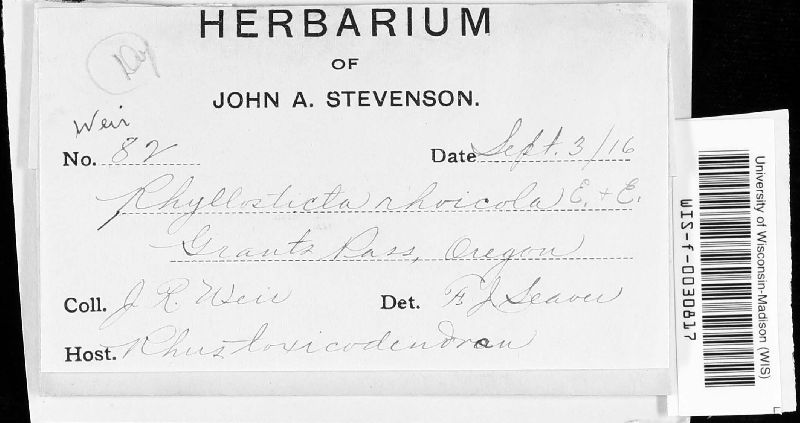 HERBARIUM
OF
JOHN A. STEVENSON.
Weir
No. 82 Date Sept. 3/16
Phyllosticta rhoicola E. + E.
Grants Pass, Oregon
Coll. J. R. Weir Det. F J Seaver
Host. Rhus toxicodendron
University of Wisconsin-Madison (WIS)
WIS-f-0030817